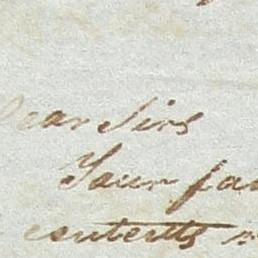 Dear Sirs
Your fa
contents